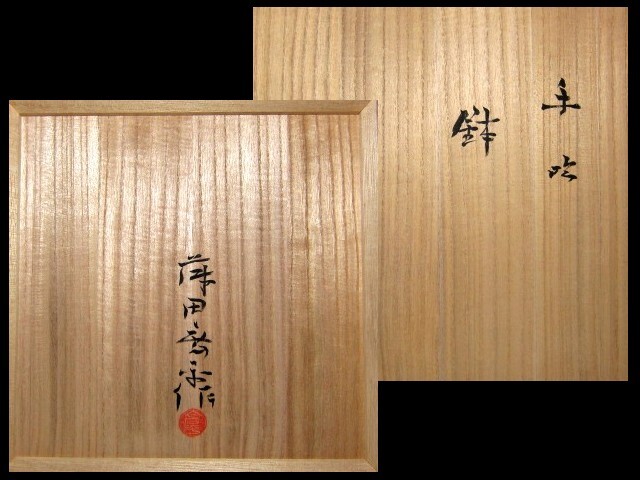 手吹
鉢
藤田喬平作